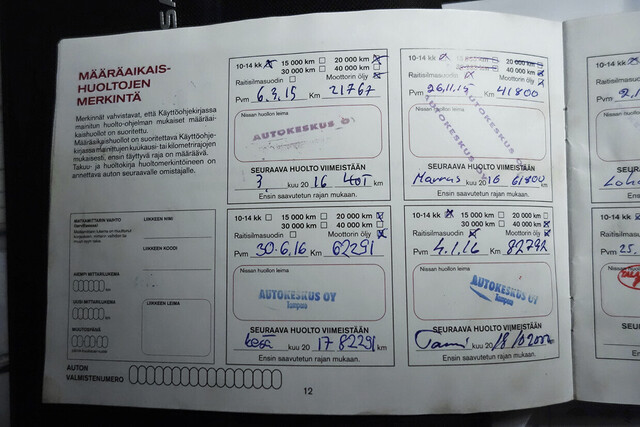 MÄÄRÄAIKAIS-
HUOLTOJEN
MERKINTÄ
Merkinnät vahvistavat, että Käyttöohjekirjassa
mainitun huolto-ohjelman mukaiset määräai-
kaishuollot on suoritettu.
Määräaikaishuollot on suoritettava Käyttöohje-
kirjassa mainittujen kuukausi- tai kilometrirajojen
mukaisesti, ensin täyttyvä raja on määräävä.
Takuu- ja huoltokirja huoltomerkintöineen on
annettava auton seuraavalle omistajalle.
MATKAMITTARIN VAIHTO
LIIKKEEN NIMI
LIIKKEEN KOODI
AIEMPI MITTARILUKEMA
km
UUSI MITTARILUKEMA
km
MUUTOSPÄIVÄ
LIIKKEEN LEIMA
AUTON
VALMISTENUMERO
10-14 kk 15 000 km 20 000 km
30 000 km 40 000 km
Raitisilmasuodin Moottorin öljy
Pvm 6.3.15 Km 21767
Nissan huollon leima
AUTOKESKUS OY
SEURAAVA HUOLTO VIIMEISTÄÄN
3 kuu 20 16 40T km
Ensin saavutetun rajan mukaan.
10-14 kk 15 000 km 20 000 km
30 000 km 40 000 km
Raitisilmasuodin Moottorin öljy
Pvm 26.11.15 Km 41800
Nissan huollon leima
AUTOKESKUS OY
AUTOKESKUS OY
SEURAAVA HUOLTO VIIMEISTÄÄN
Marras kuu 20 16 61800 km
Ensin saavutetun rajan mukaan.
10-14 kk 15 000 km 20 000 km
30 000 km 40 000 km
Raitisilmasuodin Moottorin öljy
Pvm 30.6.16 Km 62291
Nissan huollon leima
AUTOKESKUS OY
SEURAAVA HUOLTO VIIMEISTÄÄN
kesä kuu 20 17 82291 km
Ensin saavutetun rajan mukaan.
10-14 kk 15 000 km 20 000 km
30 000 km 40 000 km
Raitisilmasuodin Moottorin öljy
Pvm 4.1.16 Km 82792
Nissan huollon leima
AUTOKESKUS OY
SEURAAVA HUOLTO VIIMEISTÄÄN
Tammi kuu 20 18
Ensin saavutetun rajan mukaan.
12
10-14 kk
Raitisilm
Pvm
Nissan huo
SEURAA
10-14 kk
Raitisilm
Pvm 25.
Nissan huo
SEURAA